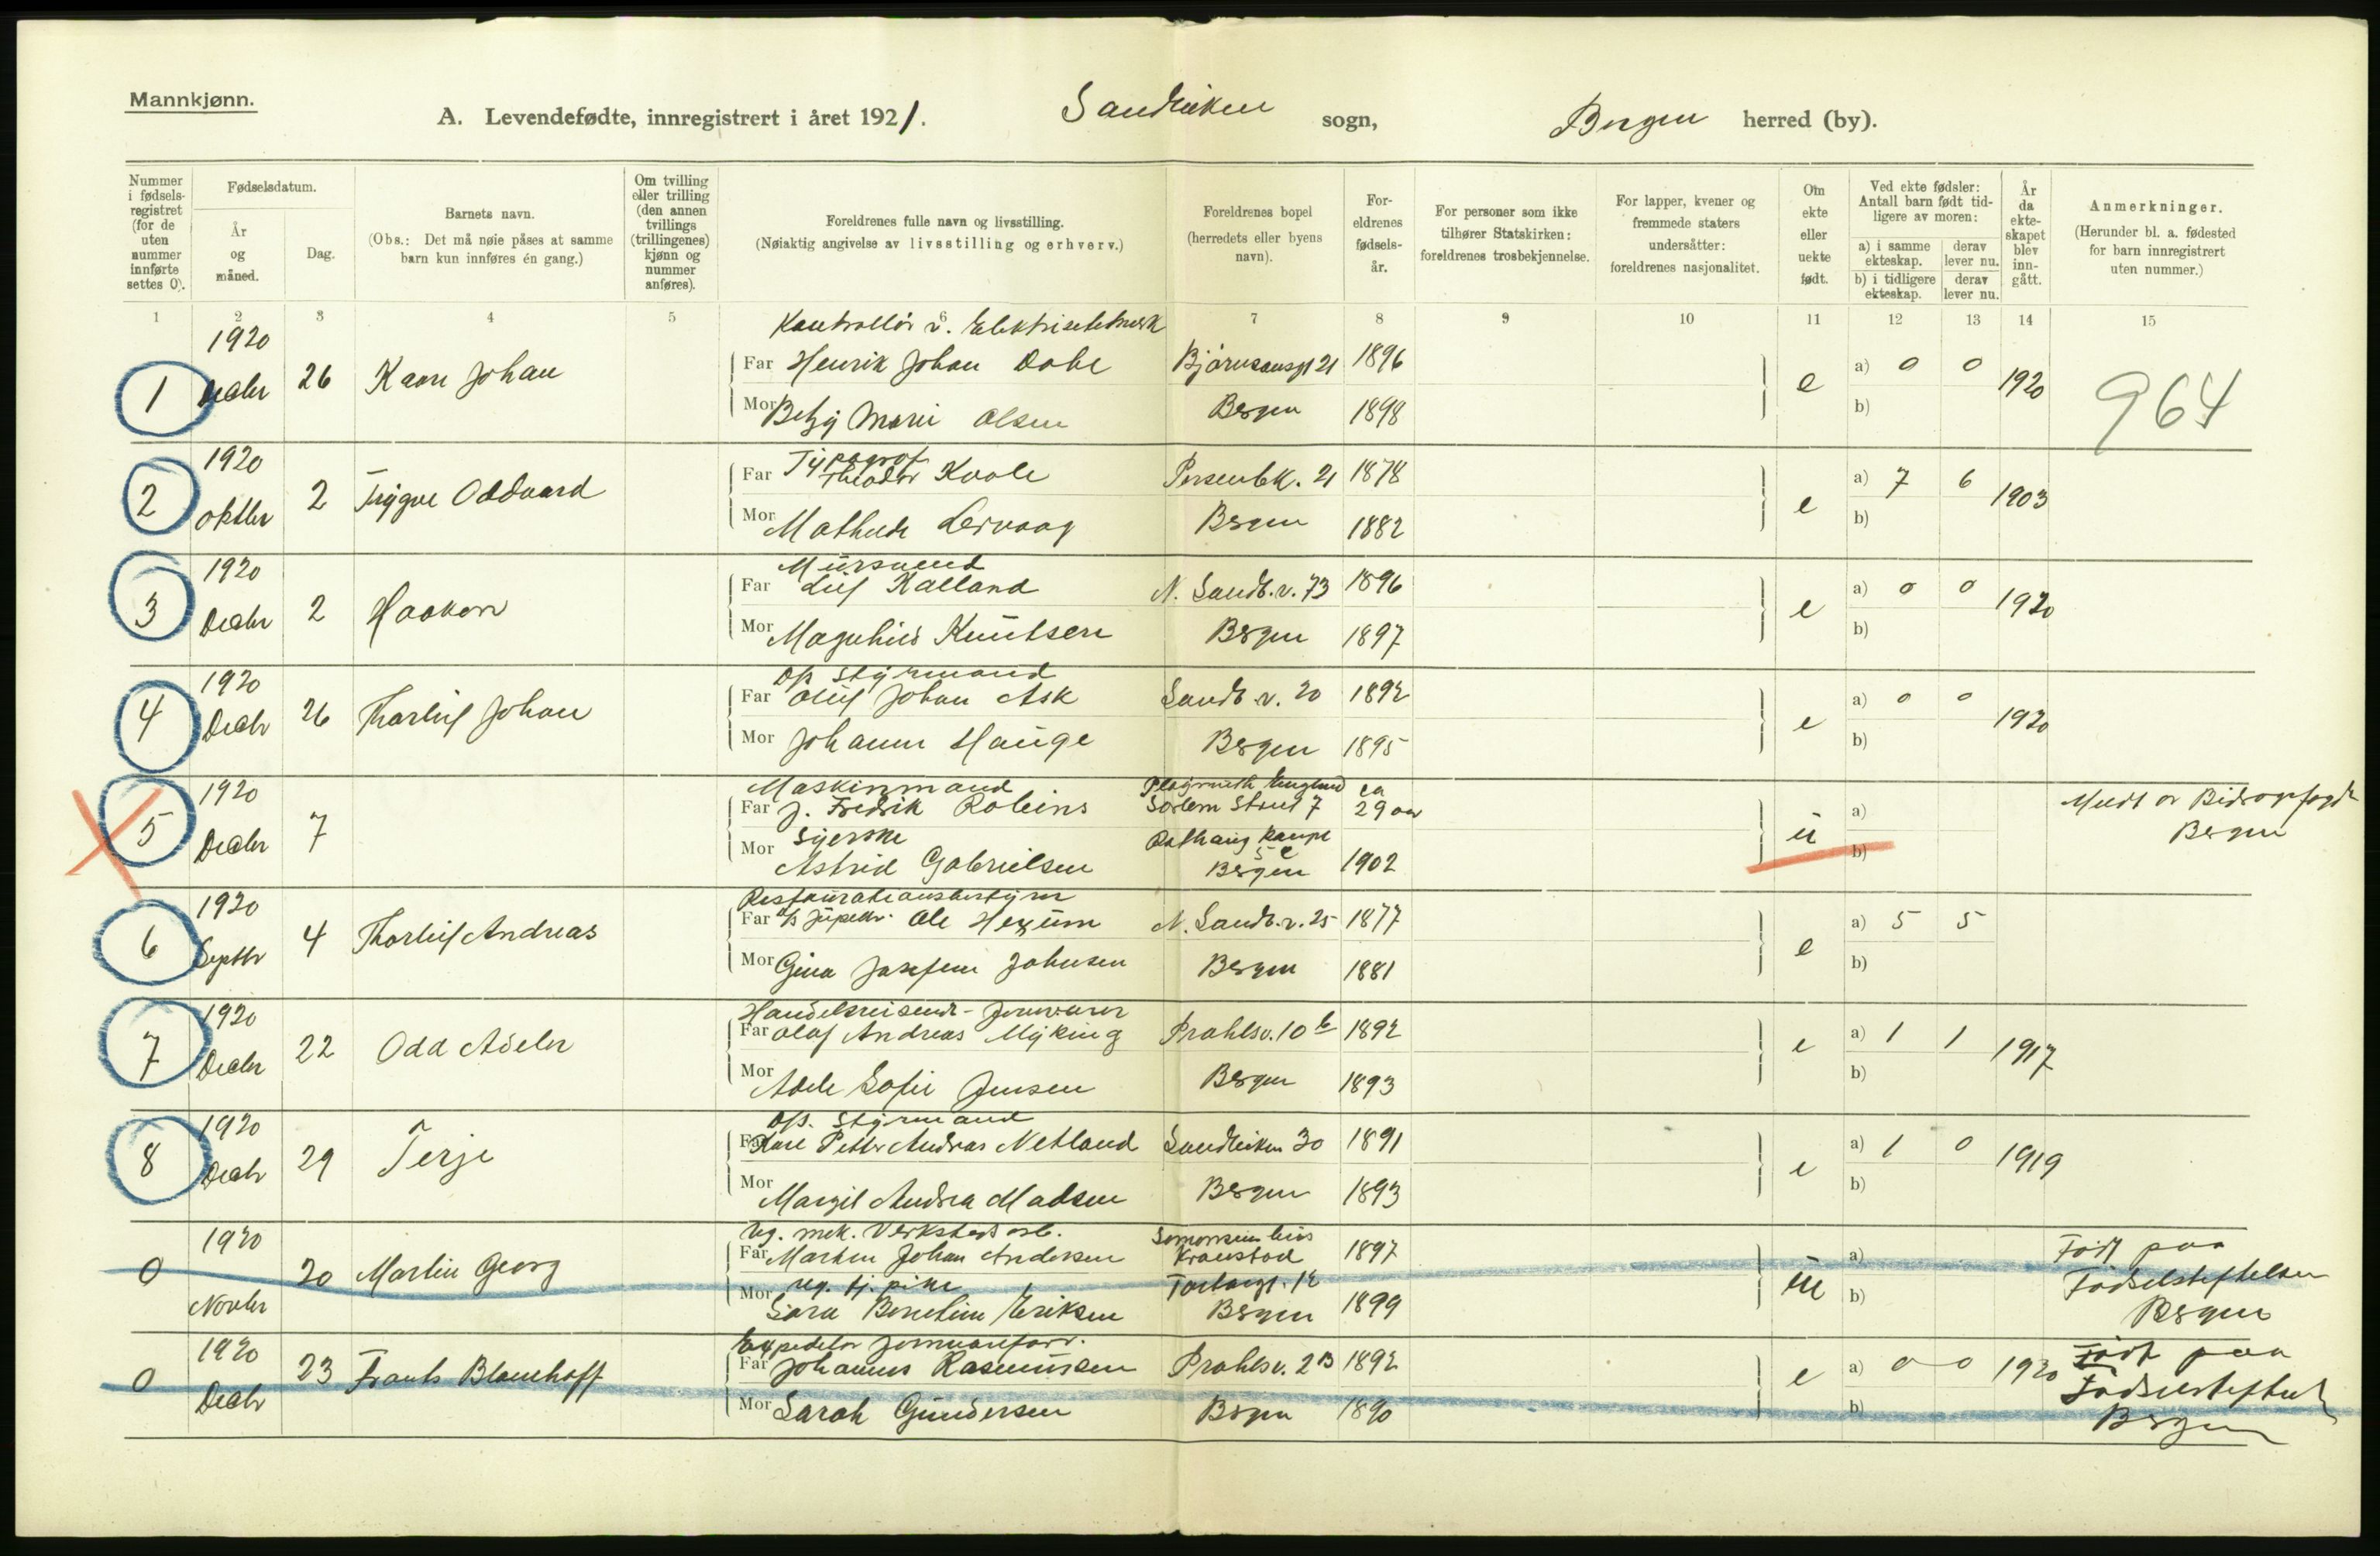 Mannkjønn.
A. Levendefødte, innregistrert i året 1921. Sandviken sogn, Bergen herred (by).
Nummer i fødselsregistret (for de uten nummer innførte settes 0).
Fødselsdatum.
År og måned.
Dag.
Barnets navn.
(Obs.: Det må nøie påses at samme barn kun innføres én gang.)
Om tvilling eller trilling (den annen tvillings (trillingenes) kjønn og nummer anføres).
Foreldrenes fulle navn og livsstilling.
(Nøiaktig angivelse av livsstilling og erhverv.)
Foreldrenes bopel (herredets eller byens navn).
Foreldrenes fødselsår.
For personer som ikke tilhører Statskirken: foreldrenes trosbekjennelse.
For lapper, kvener og fremmede staters undersåtter: foreldrenes nasjonalitet.
Om ekte eller uekte født.
Ved ekte fødsler: Antall barn født tidligere av moren:
a) i samme ekteskap. derav lever nu.
b) i tidligere ekteskap. derav lever nu.
År da ekteskapet blev inngått.
Anmerkninger.
(Herunder bl. a. fødested for barn innregistrert uten nummer.)
1 2 3 4 5 6 7 8 9 10 11 12 13 14 15
1920 Kontrollør v. Elektricitetsverk
1 Decbr 26 Kaare Johan Far Henrik Johan Dahe Bjørnsonsgt 21 1896 e a) 0 0 1920 964
Mor Betzy Marie Olsen Bergen 1898 b)
1920 Typograf
2 Oktbr 2 Trygve Oddvard Far Theodor Kvale Persenbk. 21 1878 e a) 7 6 1903
Mor Mathilde Lervaag Bergen 1882 b)
1920 Mursvend
3 Decbr 2 Haakon Far Leif Kalland N. Sandv. v. 73 1896 e a) 0 0 1920
Mor Magnhild Knutsen Bergen 1897 b)
1920 Styrmand
4 Decbr 26 Thorleif Johan Far Oluf Johan Ask Sandv. v. 20 1892 e a) 0 0 1920
Mor Johanne Hauge Bergen 1895 b)
1920 Maskinmand England ca
5 Decbr 7 Far J. Fredrik Robins Street 7 29 aar u a) Meldt av Bidragsfogd
Mor Syerske
Astrid Gabrielsen Bergen 1902 b) Bergen
1920 Restaurationsbestyrer
6 Septbr 4 Thorleif Andreas Far Ole Hexum N. Sandv. v. 25 1877 e a) 5 5
Mor Gina Josefine Johnsen Bergen 1881 b)
1920 Handelsreisende - Jernvarer
7 Decbr 22 Odd Adeler Far Olaf Andreas Myking Prahlsv. 10 b 1892 e a) 1 1 1917
Mor Adele Sofie Jensen Bergen 1893 b)
1920 Styrmand
8 Decbr 29 Terje Far Kare Petter Andreas Netland Sandviken 30 1891 e a) 1 0 1919
Mor Margit Andrea Madsen Bergen 1893 b)
1920 Ug. mek. Verkstedsarb.
0 Novbr 20 Martin Georg Far Martin Johan Andersen 1897 u a) Født paa
Mor ug. tj. pike Fødselstiftelsen
Sara Eriksen Bergen 1899 b) Bergen
1920 Expeditør Jernvareforr.
0 Decbr 23 Frants Blauuhoff Far Johannes Rasmussen Prahlsv. 2 B 1892 e a) 0 0 1920 Født paa
Mor Sarah Gundersen Bergen 1890 b) Fødselsstiftels
Bergen